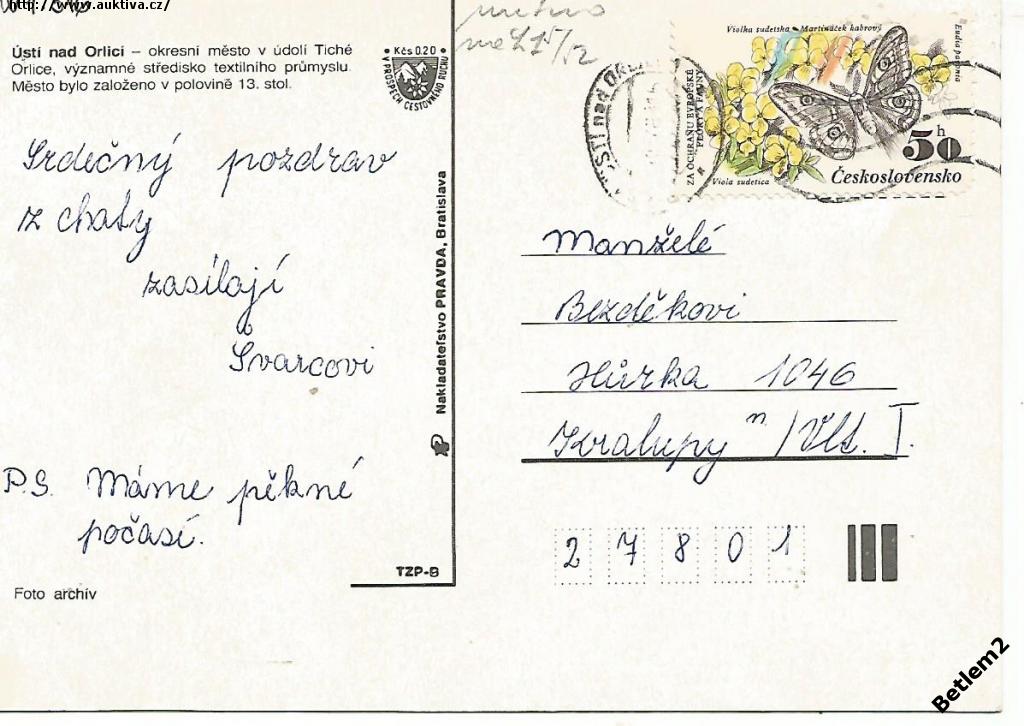 http://www.auktiva.cz/
Ústí nad Orlicí – okresní město v údolí Tiché
Orlice, významné středisko textilního průmyslu.
Město bylo založeno v polovině 13. stol.
• Kčs 0.20 •
V PROSPĚCH CESTOVNÉHO RUCHU
Srdečný pozdrav
z chaty
zasílají
Švarcovi
P.S. Máme pěkné
počasí.
Foto archív
TZP-8
Nakladateľstvo PRAVDA, Bratislava
ÚSTÍ nad ORLICÍ
ZA OCHRANU EVROPSKÉ
FLÓRY A FAUNY
Violka sudetska Martináček habrový
Eudia pavonia
Viola sudetica
50 h
Československo
Manželé
Bezděkovi
Hůrka 1046
Kralupy n/Vlt. I.
2 7 8 0 1
Betlem2